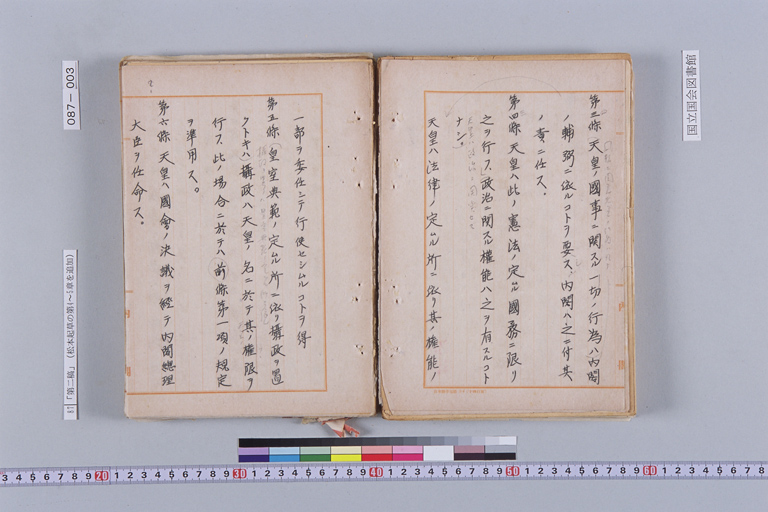 第三條 天皇ノ國事ニ関スル一切ノ行為ハ內閣
ノ輔弼ニ依ルコトヲ要ス、內閣ハ之ニ付其
ノ責ニ任ス。
第四條 天皇ハ此ノ憲法ノ定ムル國務ニ限リ
之ヲ行フ、政治ニ関スル權能ハ之ヲ有スルコト
ナシ。
天皇ハ法律ノ定ムル所ニ依リ其ノ權能ノ
一部ヲ委任シテ行使セシムルコトヲ得
第五條 皇室典範ノ定ムル所ニ依リ攝政ヲ置
クトキハ攝政ハ天皇ノ名ニ於テ其ノ權限ヲ
行フ、此ノ場合ニ於テハ前條第一項ノ規定
ヲ準用ス。
第六條 天皇ハ國會ノ決議ヲ經テ內閣總理
大臣ヲ任命ス。
087-003
87 「第二稿」(松本起草の第4~5章を追加)
国立国会図書館
3 4 5 6 7 8 9 20 1 2 3 4 5 6 7 8 9 30 1 2 3 4 5 6 7 8 9 40 1 2 3 4 5 6 7 8 9 50 1 2 3 4 5 6 7 8 9 60 1 2 3 4 5 6 7 8